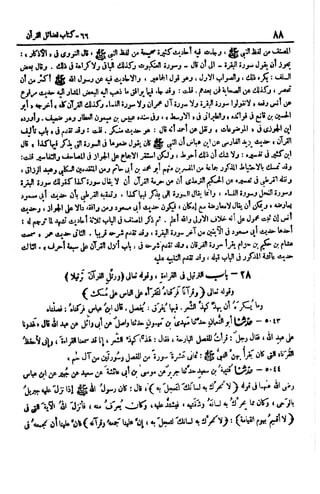 ٨٨
٦٦- كتاب فضائل القرآن
المصنف من لفظ النبي ﷺ، وجاءت فيه أحاديث كثيرة صحيحة من لفظ النبي ﷺ، قال النووي في «الأذكار»:
يجوز أن يقول سورة البقرة - إلى أن قال - وسورة العنكبوت وكذلك الباقي ولا كراهة في ذلك. وقال بعض
السلف: يكره ذلك، والصواب الأول، وهو قول الجماهير، والأحاديث فيه عن رسول الله ﷺ أكثر من أن
تحصر، وكذلك عن الصحابة فمن بعدهم. قلت: وقد جاء فيما يوافق ما ذهب إليه البعض المشار إليه حديث مرفوع
عن أنس رفعه «لا تقولوا سورة البقرة ولا سورة آل عمران ولا سورة النساء وكذلك القرآن كله» أخرجه أبو
الحسين بن قانع في فوائده، والطبراني في الأوسط، وفي سنده عبيس بن ميمون العطار وهو ضعيف. وأورده
ابن الجوزي في «الموضوعات» ونقل عن أحمد أنه قال: هو حديث منكر. قلت: وقد تقدم في باب تأليف
القرآن، حديث يزيد الفارسي عن ابن عباس أن النبي ﷺ كان يقول ضعوها في السورة التي يذكر فيها كذا، قال
ابن كثير في تفسيره: ولا شك أن ذلك أحوط، ولكن استقر الإجماع على الجواز في المصاحف والتفاسير. قلت:
وقد تمسك بالاحتياط المذكور جماعة من المفسرين منهم أبو محمد بن أبي حاتم ومن المتقدمين الكلبي وعبد الرزاق،
ونقله القرطبي في تفسيره عن الحكيم الترمذي أن من حرمة القرآن أن لا يقال سورة كذا كقولك سورة البقرة
وسورة النحل وسورة النساء، وإنما يقال السورة التي يذكر فيها كذا. وتعقبه القرطبي بأن حديث أبي مسعود
يعارضه، ويمكن أن يقال لا معارضة مع إمكان، فيكون حديث أبي مسعود ومن وافقه دالا على الجواز، وحديث
أنس إن ثبت محمول على أنه خلاف الأولى والله أعلم. ثم ذكر المصنف في الباب ثلاثة أحاديث تشهد لما ترجم له:
أحدها حديث أبي مسعود في الآيتين من آخر سورة البقرة، وقد تقدم شرحه قريبا. الثاني حديث عمر «سمعت
هشام بن حكيم بن حزام يقرأ سورة الفرقان، وقد تقدم شرحه في «باب أنزل القرآن على سبعة أحرف». الثالث
حديث عائشة المذكور في الباب قبله، وقد تقدم التنبيه عليه
٢٨ - باب الترتيل في القراءة، وقوله تعالى ﴿ورتل القرآن ترتيلا﴾
وقوله تعالى ﴿وقرآنا فرقناه لتقرأه على الناس على مكث﴾
وما يكره أن يهذ كهذ الشعر. فيها يفرق: يفصل. قال ابن عباس فرقناه: فصلناه
٥٠٤٣ - حدثنا أبو النعمان حدثنا مهدي بن ميمون حدثنا واصل عن أبي وائل عن عبد الله قال: غدونا
على عبد الله، فقال رجل: قرأت المفصل البارحة، فقال: هذا كهذ الشعر، إنا قد سمعنا القراءة، وإني لأحفظ
القرناء التي كان يقرأ بهن النبي ﷺ: ثماني عشرة سورة من المفصل وسورتين من آل حم،
٥٠٤٤ - حدثنا قتيبة بن سعيد حدثنا جرير عن موسى بن أبي عائشة عن سعيد بن جبير عن ابن عباس
رضي الله عنهما في قوله ﴿لا تحرك به لسانك لتعجل به﴾، قال: كان رسول الله ﷺ إذا نزل عليه جبريل
بالوحي، وكان مما يحرك به لسانه وشفتيه، فيشتد عليه، وكان يعرف منه، فأنزل الله الآية التي في
﴿لا أقسم بيوم القيامة﴾: ﴿لا تحرك به لسانك لتعجل به، إن علينا جمعه وقرآنه﴾ فإن علينا أن نجمعه في